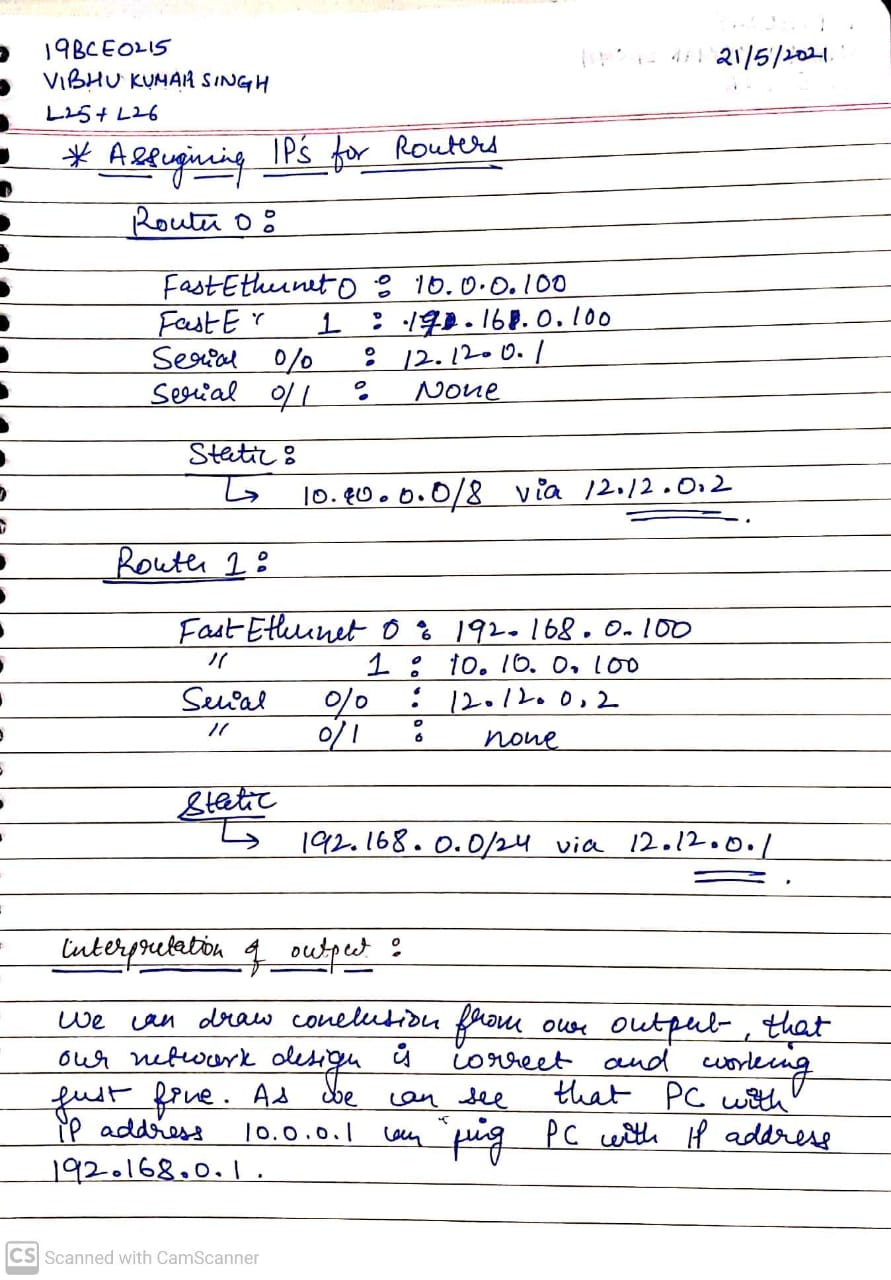 19BCE0215
21/5/2021.
VIBHU KUMAR SINGH
L25+L26
* Assugining IP's for Routers
Router 0:
FastEthernet 0 : 10.0.0.100
FastE " 1 : .168.0.100
Serial 0/0 : 12.12.0.1
Serial 0/1 : None
Static:
↳ 10. .0.0/8 via 12.12.0.2.
Router 1:
FastEthernet 0 : 192.168.0.100
" 1 : 10.10.0.100
Serial 0/0 : 12.12.0.2
" 0/1 : none
Static
↳ 192.168.0.0/24 via 12.12.0.1.
Interpretation of output:
We can draw conclusion from our output, that
our network design is correct and working
just fine. As we can see that PC with
IP address 10.0.0.1 can "ping PC with IP address
192.168.0.1.
CS Scanned with CamScanner